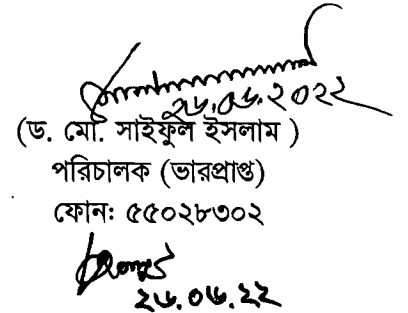 ২৬.০৬.২০২২
(ড. মো. সাইফুল ইসলাম )
পরিচালক (ভারপ্রাপ্ত)
ফোনঃ ৫৫০২৮৩০২
২৬.০৬.২২